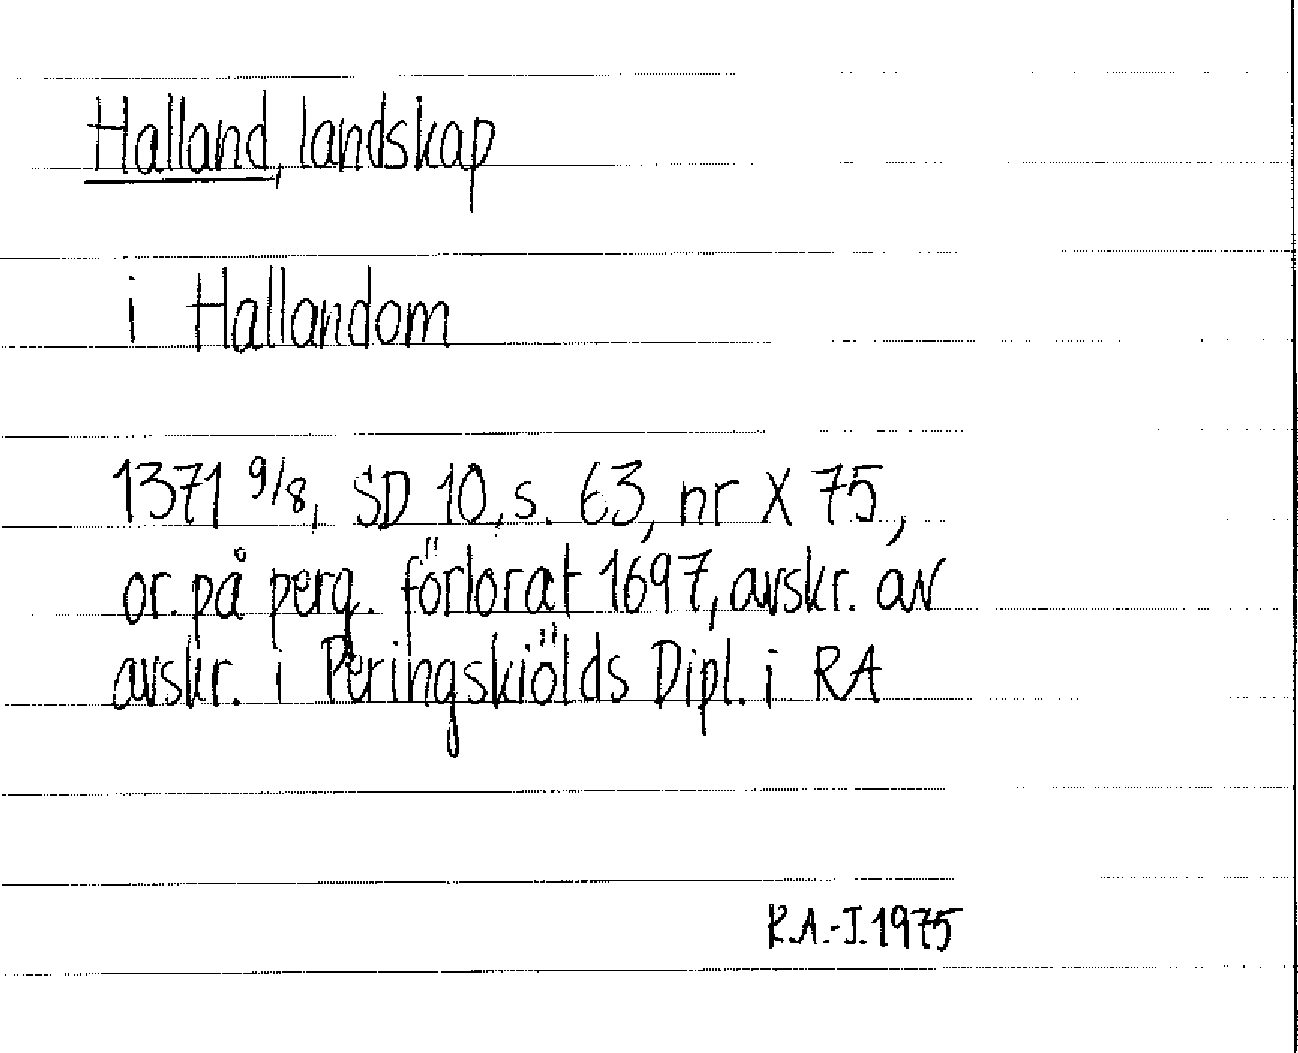 Halland, landskap
i Hallandom
1371 9/8, SD 10, s. 63, nr X 75,
or. på perg. förlorat 1697, avskr. av
avskr. i Peringskiölds Dipl. i RA
R.A.-I.1975